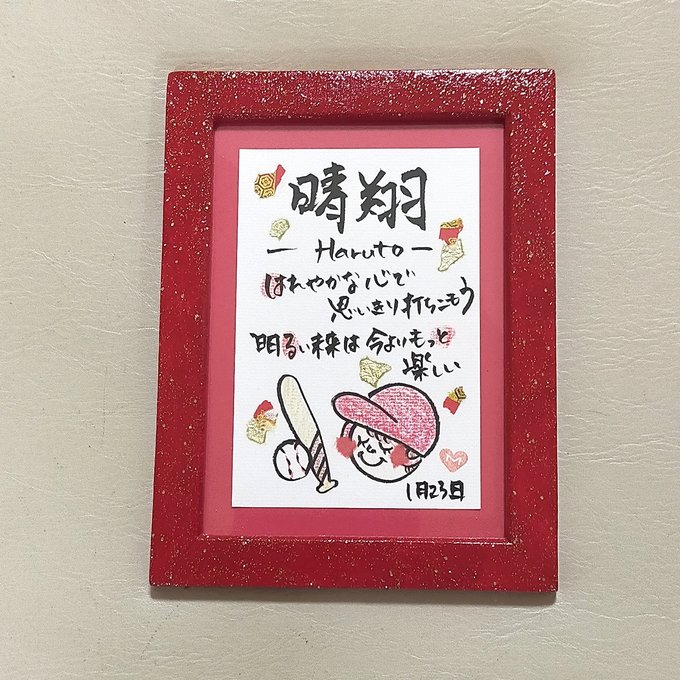 晴翔
— Haruto —
はれやかな心で
思いきり打ちこもう
明るい未来は今よりもっと
楽しい
M
1月23日